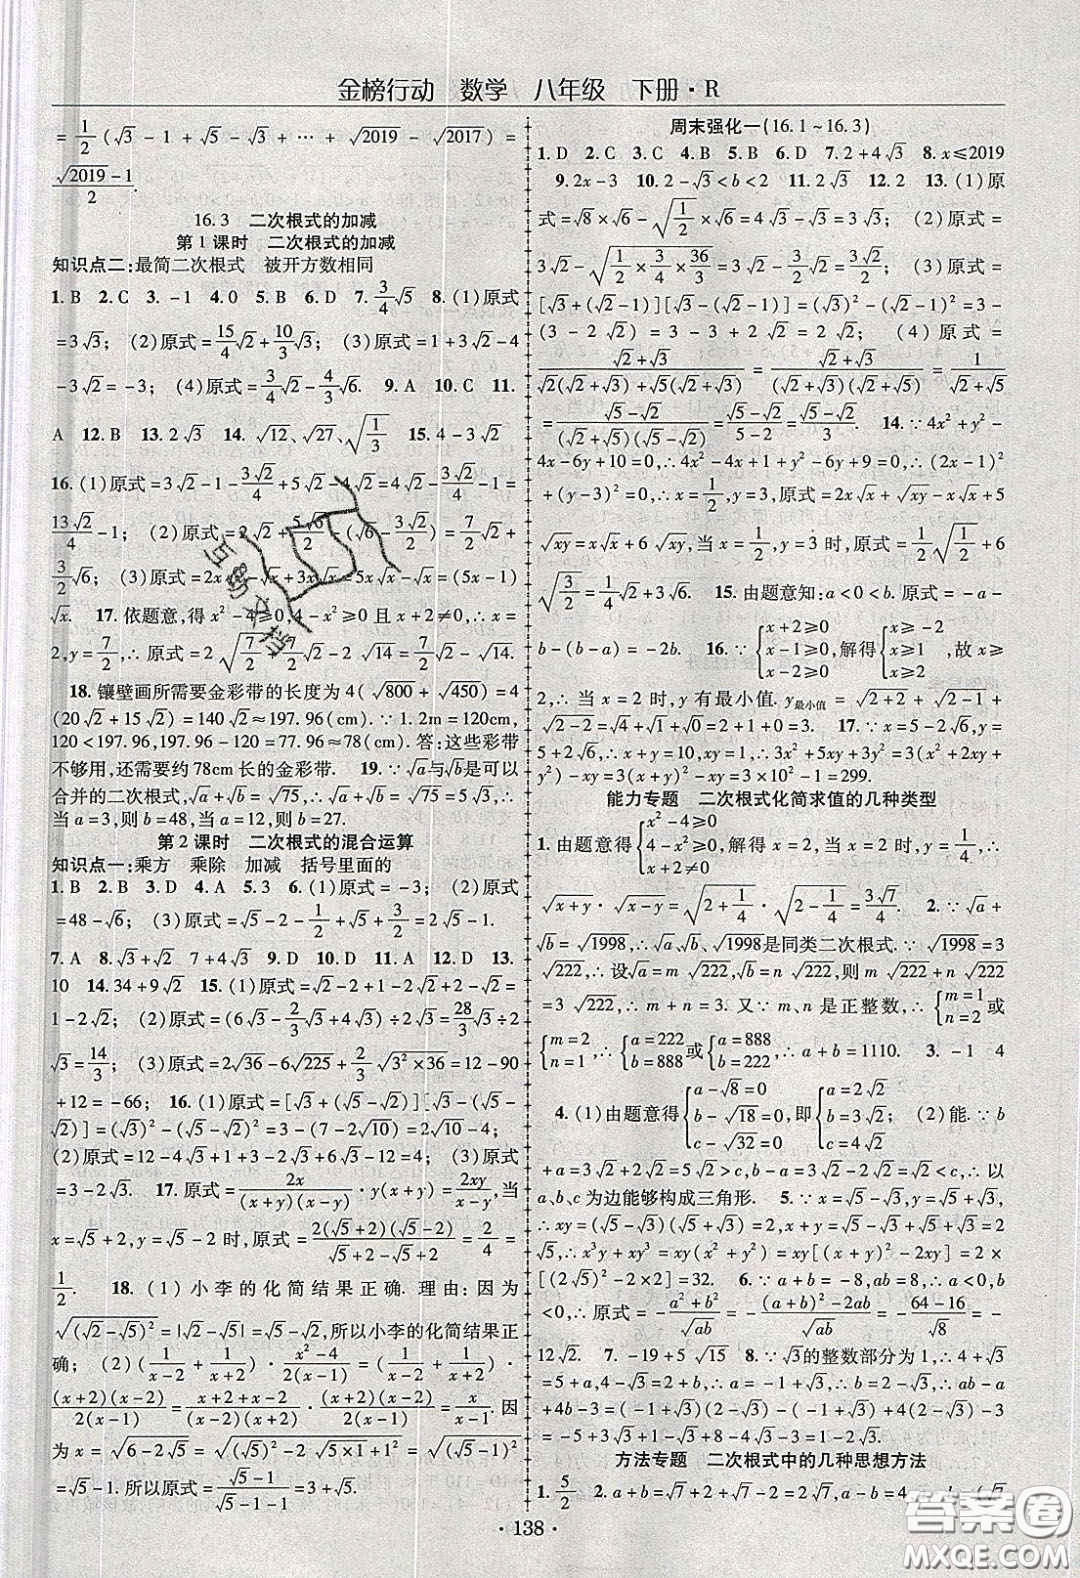 金榜行动 数学 八年级 下册·R
=1/2(√3-1+√5-√3+…+√2019-√2017)=
(√2019-1)/2.
16.3 二次根式的加减
第1课时 二次根式的加减
知识点二:最简二次根式 被开方数相同
1.B 2.C 3.-1 4.0 5.B 6.D 7.3/4√5 8.(1)原式
=3√3; (2)原式=15/4√2+10/3√3; (3)原式=1+3√2-4
-3√2=-3; (4)原式=3/4√2-4/3√6. 9.A 10.C 11.
A 12.B 13.2√3 14.√12、√27、√(1/3) 15.4-3√2
16.(1)原式=3√2-1-3√2/4+5√2-4√2=4√2-3√2/4-1=
13√2/4-1; (2)原式=2√2+5√6/2-(√6-3√2/2)=7/2√2+
3/2√6; (3)原式=2x√x-√x+3x√x=5x√x-√x=(5x-1)
√x. 17.依题意,得x²-4≥0,4-x²≥0且x+2≠0,∴x=
2,y=7/2√2-√14.
18.镶壁画所需要金彩带的长度为4(√800+√450)=4
(20√2+15√2)=140√2≈197.96(cm).∵1.2m=120cm,
120<197.96,197.96-120=77.96≈78(cm).答:这些彩带
不够用,还需要约78cm长的金彩带. 19.∵√a与√b是可以
合并的二次根式,√a+√b=√75,∴√a+√b=√75=5√3,∴
当a=3,则b=48,当a=12,则b=27.
第2课时 二次根式的混合运算
知识点一:乘方 乘除 加减 括号里面的
1.B 2.B 3.D 4.A 5.3 6.(1)原式=-3; (2)原式
=48-√6; (3)原式=√5-2-1/2+√5+3/2=2√5-1.
7.A 8.√3+√2 7+4√3 9.D 10.D 11.A 12.D 13.
10 14.34+9√2 15.(1)原式=√2-2+1-2√2+2-√2=
1-2√2; (2)原式=(6√3-2/3√3+4√3)÷2√3=28/3√3÷2
√3=14/3; (3)原式=2√36-6√225+2/3√(3²×36)=12-90
+12=-66; 16.(1)原式=[√3+(√5-√2)][√3-(√5-
√2)]=(√3)²-(√5-√2)²=3-(7-2√10)=2√10-4;
(2)原式=12-4√3+1+3-2√3=16-6√3; (3)原式
=3√3-2. 17.原式=2x/((x+y)(x-y))·y(x+y)=2xy/(x-y),当
x=√5+2,y=√5-2时,原式=2(√5+2)(√5-2)/(√5+2-√5+2)=2/4=
1/2. 18.(1)小李的化简结果正确.理由:因为
√((√2-√5)²)=|√2-√5|=√5-√2,所以小李的化简结果正
确; (2)(1/(x-2)+1/(x+2))·(x²-4)/(2(x-1))=(1/(x-2)+1/(x+2))·
(x+2)(x-2)/(2(x-1))=(x+2+x-2)/((x+2)(x-2))·(x+2)(x-2)/(2(x-1))=x/(x-1).因
为x=√(6-2√5)=√((√5)²-2√(5×1)+1²)=√((√5-1)²)=√5
-1,所以原式=(√5-1)/(√5-1-1)=3+√5.
周末强化一(16.1~16.3)
1.D 2.C 3.C 4.B 5.B 6.D 7.2+4√3 8.x≤2019
9.2x-3 10.2-√3<b<2 11.2√3 12.2 13.(1)原
式=√8×√6-√(1/2)×√6=4√3-√3=3√3; (2)原式=
3√2-√(1/2×3/4×36/3)=3√2-3/2√2=3/2√2; (3)原式=
[√3+(√2-1)][√3-(√2-1)]=(√3)²-(√2-1)²=3-
(3-2√2)=3-3+2√2=2√2; (4)原式=
(√2+√3)/(√2(√2+√3)+√5(√2+√3))=(√2+√3)/((√2+√3)(√2+√5))=1/(√2+√5)
=(√5-√2)/((√2+√5)(√5-√2))=(√5-√2)/(5-2)=(√5-√2)/3. 14.∵4x²+y²-
4x-6y+10=0,∴4x²-4x+1+y²-6y+9=0,∴(2x-1)²
+(y-3)²=0,∴x=1/2,y=3.原式=2x√x+√xy-x√x+5
√xy=x√x+6√xy,当x=1/2,y=3时,原式=1/2√(1/2)+6
√(3/2)=1/4√2+3√6. 15.由题意知:a<0<b.原式=-a-
b-(b-a)=-2b. 16.由题意得{x+2≥0 x-1≥0,解得 x-2≥0 {x≥-2 x≥1 ,故x x≥2
=2,∴当x=2时,y有最小值.y最小值=√(2+2)+√(2-1)+
√(2-2)=√4+√1+√0=2+1+0=3. 17.∵x=5-2√6,y=
5+2√6,∴x+y=10,xy=1,∴3x²+5xy+3y²=3(x²+2xy+
y²)-xy=3(x+y)²-xy=3×10²-1=299.
能力专题 二次根式化简求值的几种类型
1.由题意得{x²-4≥0 4-x²≥0,解得x=2,当x=2时,y=1/4,∴ x+2≠0
√(x+y)·√(x-y)=√(2+1/4)·√(2-1/4)=3√7/4. 2.∵√a+
√b=√1998,∴√a、√b、√1998是同类二次根式.∵√1998=3
√222,∴设√a=m√222,√b=n√222,则m√222+n√222
=3√222,∴m+n=3.又∵m、n是正整数,∴{m=1 n=2或
{m=2 n=1,∴{a=222 b=888或{a=888 b=222,∴a+b=1110. 3.-1 4
4.(1)由题意得{a-√8=0 b-√18=0,即 c-√32=0 {a=2√2 b=3√2; c=4√2 (2)能.∵b
+a=3√2+2√2=5√2>c,b-a=3√2-2√2=√2<c,∴以
a、b、c为边能够构成三角形. 5.∵x=√5-√3,y=√5+√3,
∴xy=(√5-√3)(√5+√3)=2,x+y=√5-√3+√5+√3=2
√5,∴x³y+xy³=xy(x²+y²)=xy[(x+y)²-2xy]=2×
[(2√5)²-2×2]=32. 6.∵a+b=-8,ab=8,∴a<0,b
<0,∴原式=-(a²+b²)/√ab=-((a+b)²-2ab)/√ab=-(64-16)/√8=-
12√2. 7.-19+5√15 8.∵√3的整数部分为1,∴4+√3
=5+√3-1,∴x=5,y=√3-1,∴a=-1+√3,∴(2x-a)y-a²
=(10+1-√3)(√3-1)-(-1+√3)²
=-5+3√3+1+√3)(2-√3)-(-1+√3)+(-1+√3)
=-5+3√3+13√3-14-4+2√3=18√3-18.
方法专题 二次根式中的几种思想方法
1.5/2 2.a+b=√7+2+√7-2=2√7,a-b=4
· 138 ·
答案圈
MXQE.COM